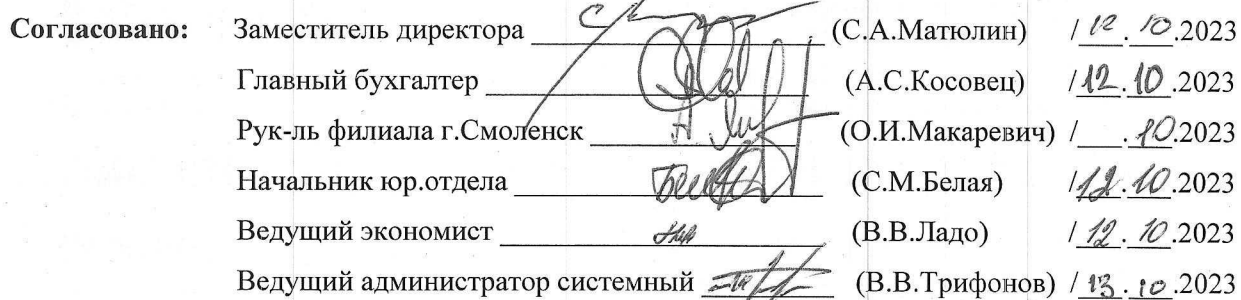 Согласовано: Заместитель директора (С.А.Матюлин) /12.10.2023
Главный бухгалтер (А.С.Косовец) /12.10.2023
Рук-ль филиала г.Смоленск (О.И.Макаревич) / .10.2023
Начальник юр.отдела (С.М.Белая) /12.10.2023
Ведущий экономист (В.В.Ладо) /12.10.2023
Ведущий администратор системный (В.В.Трифонов) /13.10.2023